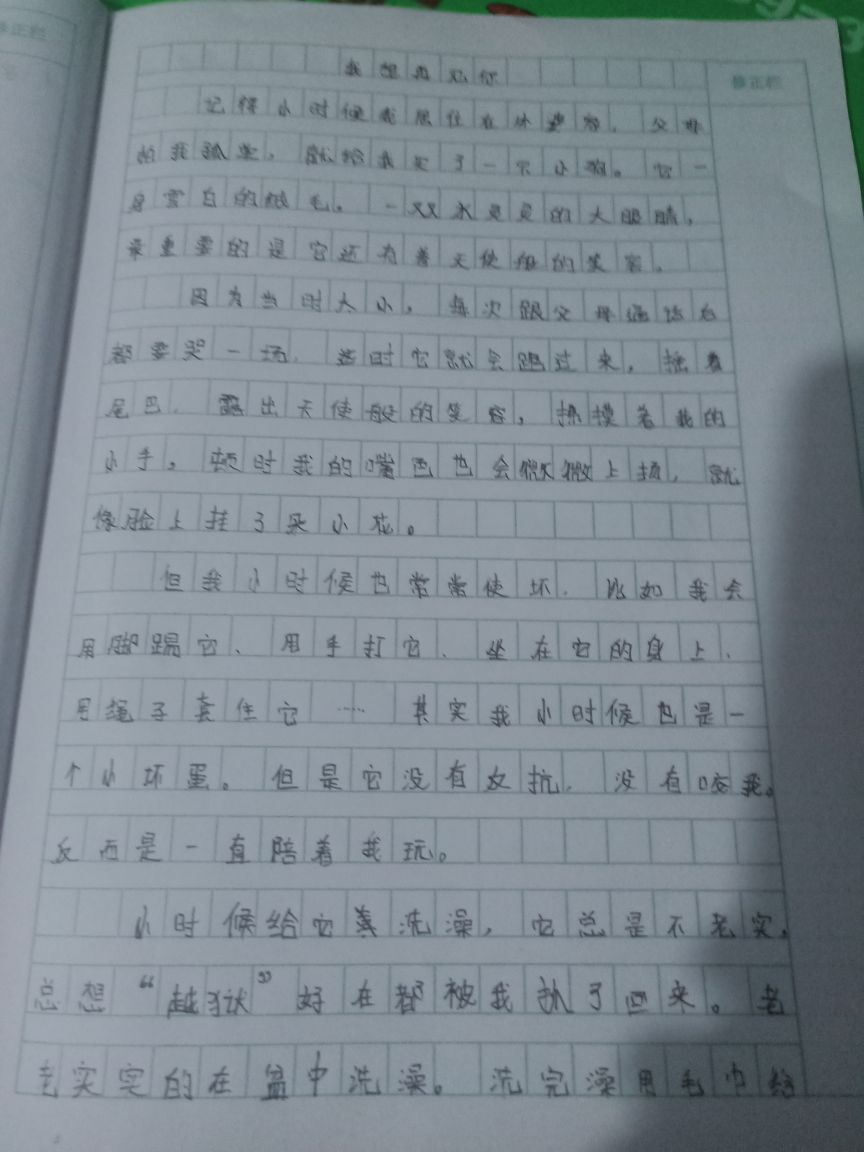 修正栏
我想再见你
记得小时候我居住在外婆家,父母
怕我孤单,就给我买了一只小狗。它一
身雪白的绒毛。一双水灵灵的大眼睛,
最重要的是它还有着天使般的笑容。
因为当时太小,每次跟父母通话后
都要哭一场,当时它就会跑过来,摇着
尾巴,露出天使般的笑容,抚摸着我的
小手。顿时我的嘴巴也会微微上扬,就
像脸上挂了朵小花。
但我小时候也常常使坏,比如我会
用脚踢它、用手打它、坐在它的身上、
用绳子套住它……其实我小时候也是一
个小坏蛋。但是它没有反抗,没有咬我。
反而是一直陪着我玩。
小时候给它洗澡,它总是不老实,
总想“越狱”好在都被我抓了回来。老
老实实的在盆中洗澡。洗完澡用毛巾给